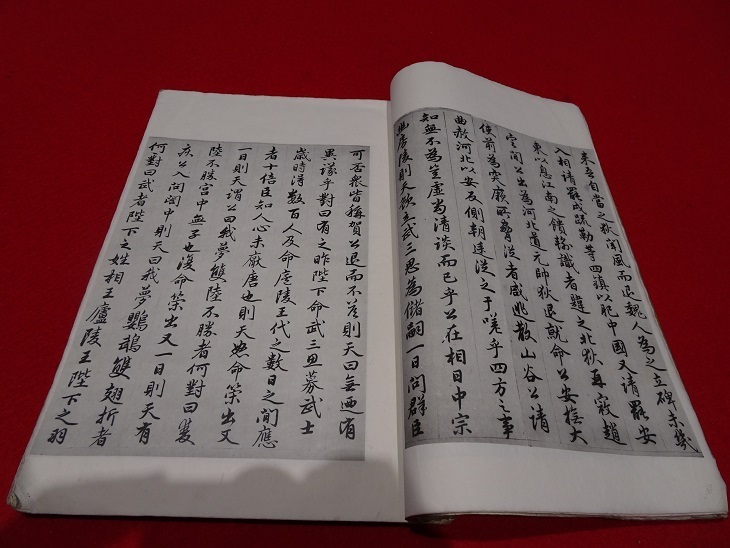 來吾自當之狄聞風而退魏人為之立碑未幾
入相請罷戍疏勒等四鎮以肥中國又請罷安
東以息江南之饋輸識者韙之北狄再寇趙
定間公出為河北道元帥狄退就命公安撫大
使前為突厥所脅從者咸逃散山谷公請
曲赦河北以安反側朝廷從之于嗟乎四方之事
知無不為豈虛尚清談而已乎公在相日中宗
幽房陵則天欲立武三思為儲嗣一日問群臣
可否衆皆稱賀公退而不答則天曰無迺有
異議乎對曰有之昨陛下命武三思募武士
歲時得數百人及命廬陵王代之數日之間應
者十倍臣知人心未厭唐也則天怒命策出又
一日則天謂公曰我夢雙陸不勝者何對曰雙
陸不勝宮中無子也復命策出又一日則天有
疾公入問閤中則天曰我夢鸚鵡雙翅折者
何對曰武者陛下之姓相王廬陵王陛下之羽